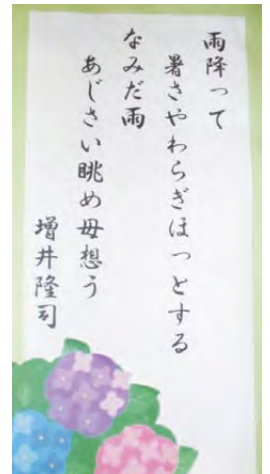 雨降って
暑さやわらぎほっとする
なみだ雨
あじさい眺め母想う
増井隆司